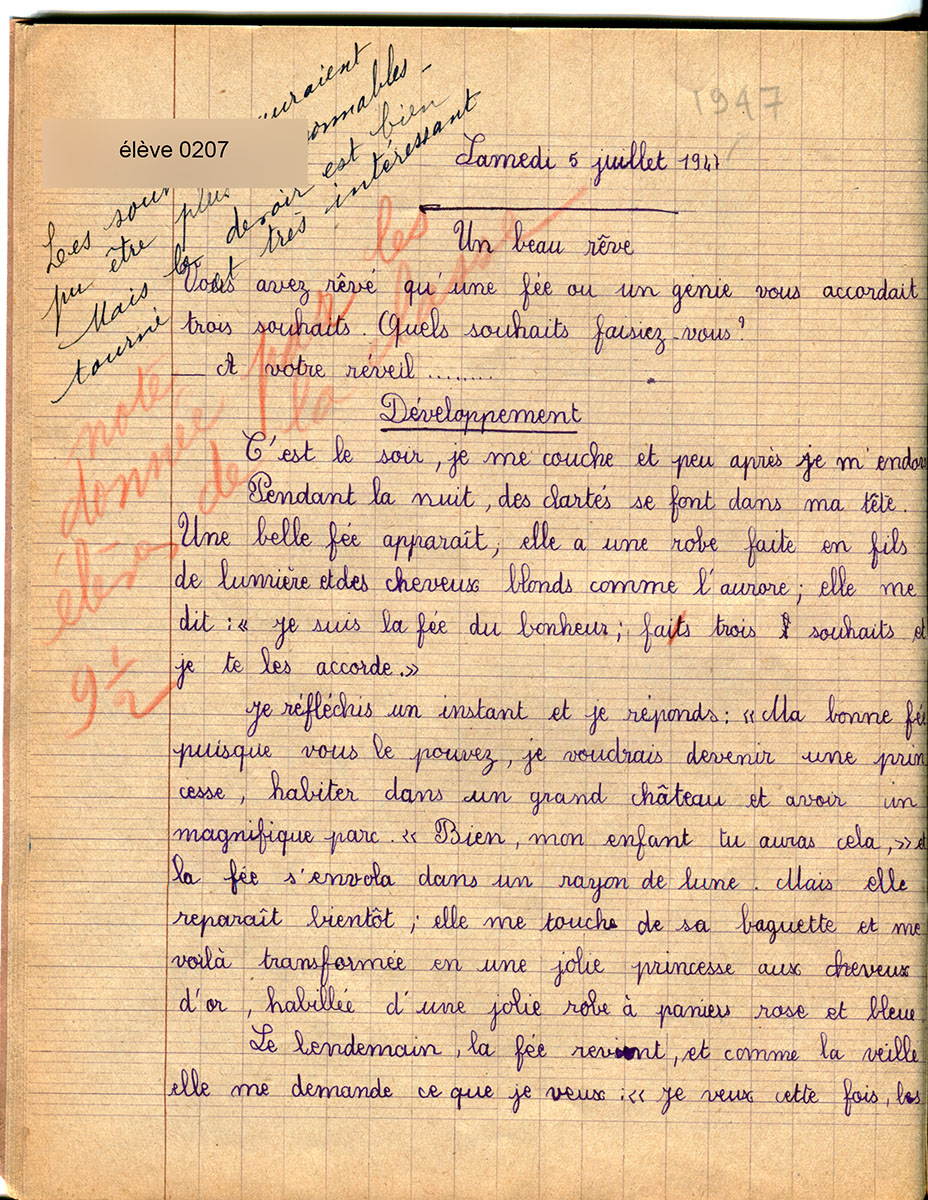 1947
élève 0207
Les souhaits auraient
pu être plus raisonnables -
Mais le devoir est bien
tourné et très intéressant
Samedi 5 juillet 1947
Un beau rêve
Vous avez rêvé qu'une fée ou un génie vous accordait
trois souhaits. Quels souhaits faisiez-vous?
A votre réveil ........
note
donnée par les
élèves de la classe
9 1/2
Développement
C'est le soir, je me couche et peu après je m'endors
Pendant la nuit, des clartés se font dans ma tête.
Une belle fée apparaît, elle a une robe faite en fils
de lumière et des cheveux blonds comme l'aurore; elle me
dit : « Je suis la fée du bonheur; faits trois souhaits et
je te les accorde. »
Je réfléchis un instant et je réponds: « Ma bonne fée
puisque vous le pouvez, je voudrais devenir une prin
cesse, habiter dans un grand château et avoir un
magnifique parc. « Bien, mon enfant tu auras cela, » et
la fée s'envola dans un rayon de lune. Mais elle
reparaît bientôt; elle me touche de sa baguette et me
voilà transformée en une jolie princesse aux cheveux
d'or, habillée d'une jolie robe à paniers rose et bleue.
Le lendemain, la fée revient, et comme la veille
elle me demande ce que je veux : « Je veux cette fois, les